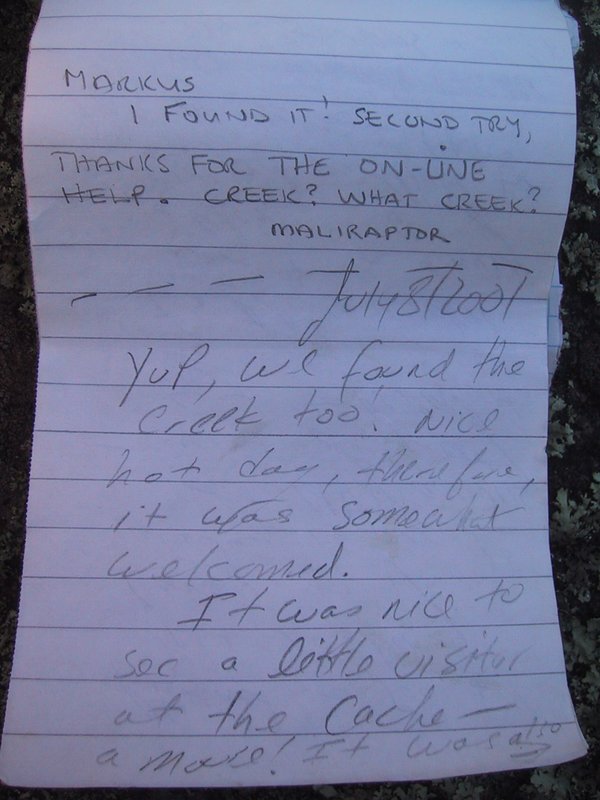 MARKUS
I FOUND IT! SECOND TRY,
THANKS FOR THE ON-LINE
HELP. CREEK? WHAT CREEK?
MALIRAPTOR
July 8/2001
Yup, we found the
Creek too! Nice
hot day, therefore,
it was somewhat
welcomed.
It was nice to
see a little visitor
at the Cache —
a mouse! It was also